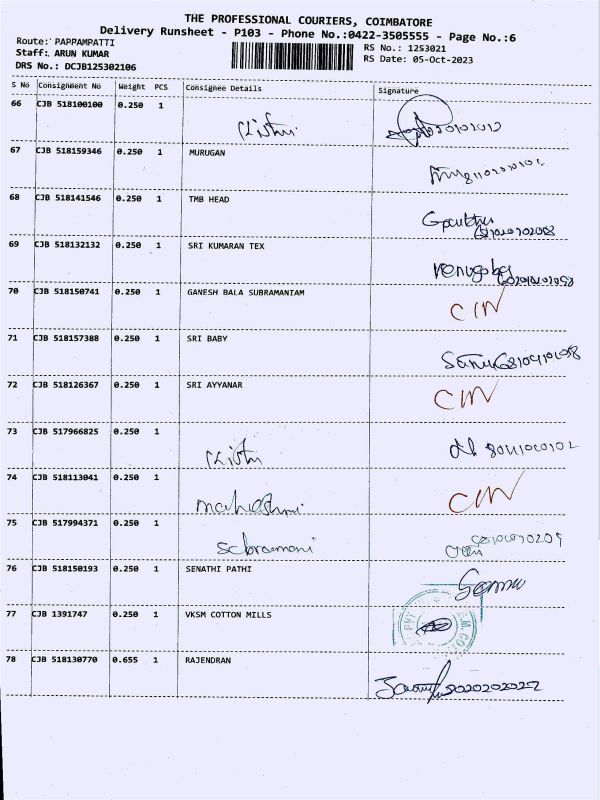 THE PROFESSIONAL COURIERS, COIMBATORE
Delivery Runsheet - P103 - Phone No.:0422-3505555 - Page No.:6
Route: PAPPAMPATTI
RS No.: 12S3021
Staff: ARUN KUMAR
RS Date: 05-Oct-2023
DRS No.: DCJB125302106
S No Consignment No Weight PCS Consignee Details Signature
66 CJB 518100100 0.250 1
67 CJB 518159346 0.250 1 MURUGAN
68 CJB 518141546 0.250 1 TMB HEAD
69 CJB 518132132 0.250 1 SRI KUMARAN TEX
70 CJB 518150741 0.250 1 GANESH BALA SUBRAMANIAM CIN
71 CJB 518157388 0.250 1 SRI BABY
72 CJB 518126367 0.250 1 SRI AYYANAR CIN
73 CJB 517966825 0.250 1
74 CJB 518113041 0.250 1 CIN
75 CJB 517994371 0.250 1
76 CJB 518150193 0.250 1 SENATHI PATHI
77 CJB 1391747 0.250 1 VKSM COTTON MILLS
78 CJB 518130770 0.655 1 RAJENDRAN